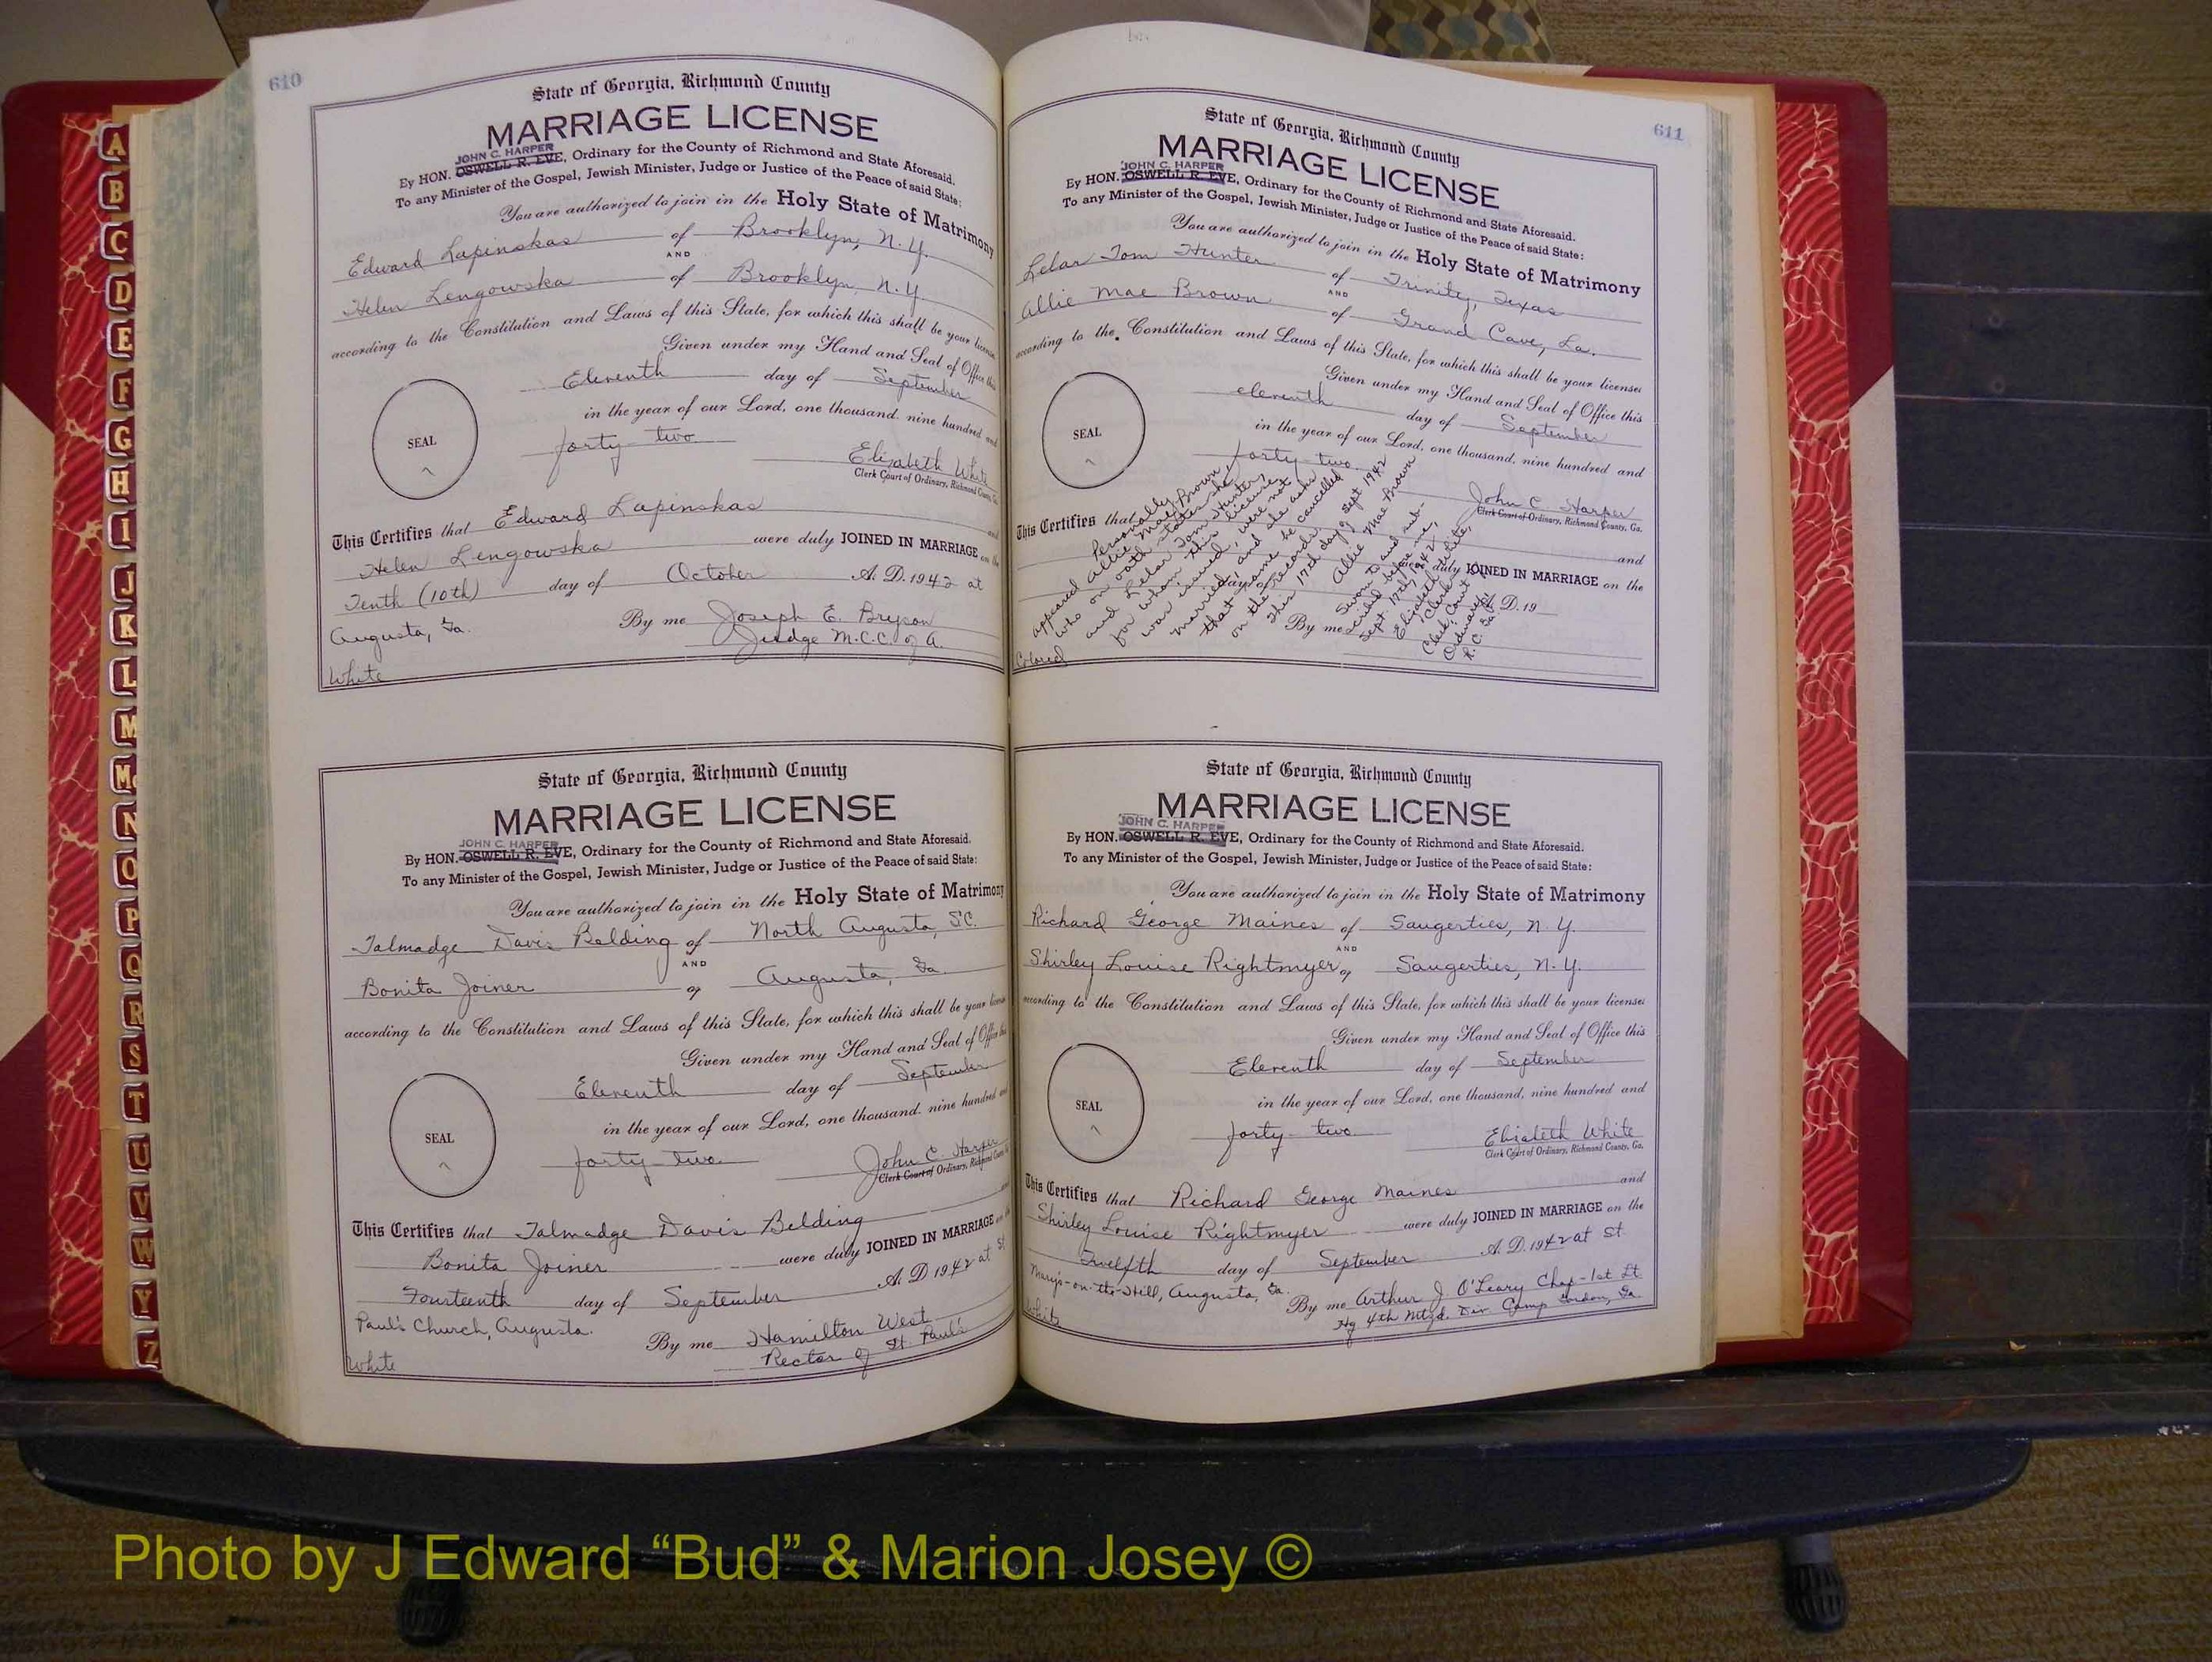 610
State of Georgia, Richmond County
MARRIAGE LICENSE
JOHN C. HARPER
By HON. OSWELL R. EVE, Ordinary for the County of Richmond and State Aforesaid.
To any Minister of the Gospel, Jewish Minister, Judge or Justice of the Peace of said State:
You are authorized to join in the Holy State of Matrimony
Edward Lapinskas of Brooklyn, N.Y.
AND
Helen Lengowska of Brooklyn, N.Y.
according to the Constitution and Laws of this State, for which this shall be your license
Given under my Hand and Seal of Office this
Eleventh day of September
in the year of our Lord, one thousand, nine hundred and
forty-two
SEAL
Elizabeth White
Clerk Court of Ordinary, Richmond County, Ga.
This Certifies that Edward Lapinskas and
Helen Lengowska were duly JOINED IN MARRIAGE on the
Tenth (10th) day of October A. D. 1942 at
Augusta, Ga. By me Joseph E. Bryson
Judge M.C.C. of A.
White
State of Georgia, Richmond County
MARRIAGE LICENSE
JOHN C. HARPER
By HON. OSWELL R. EVE, Ordinary for the County of Richmond and State Aforesaid.
To any Minister of the Gospel, Jewish Minister, Judge or Justice of the Peace of said State:
You are authorized to join in the Holy State of Matrimony
Talmadge Davis Belding of North Augusta, S.C.
AND
Bonita Joiner of Augusta, Ga.
according to the Constitution and Laws of this State, for which this shall be your license
Given under my Hand and Seal of Office this
Eleventh day of September
in the year of our Lord, one thousand, nine hundred and
forty-two
SEAL
John C. Harper
Clerk Court of Ordinary, Richmond County
This Certifies that Talmadge Davis Belding and
Bonita Joiner were duly JOINED IN MARRIAGE on the
Fourteenth day of September A. D. 1942 at St.
Paul's Church, Augusta. By me Hamilton West
Rector of St. Paul's
White
611
State of Georgia, Richmond County
MARRIAGE LICENSE
JOHN C. HARPER
By HON. OSWELL R. EVE, Ordinary for the County of Richmond and State Aforesaid.
To any Minister of the Gospel, Jewish Minister, Judge or Justice of the Peace of said State:
You are authorized to join in the Holy State of Matrimony
Lelar Tom Hunter of Trinity, Texas
AND
Allie Mae Brown of Grand Cave, La.
according to the Constitution and Laws of this State, for which this shall be your licenses
Given under my Hand and Seal of Office this
eleventh day of September
in the year of our Lord, one thousand, nine hundred and
forty-two
SEAL
John C. Harper
Clerk Court of Ordinary, Richmond County, Ga.
This Certifies that
and
were duly JOINED IN MARRIAGE on the
day of A. D. 19
By me
Personally
appeared Allie Mae Brown
who on oath states she
and Lelar Tom Hunter,
for whom this license
was issued, were not
married, and she asks
that same be cancelled
on the records,
This 17th day of Sept 1942
Allie Mae Brown
Sworn to and sub-
scribed before me,
Sept. 17th, 1942
Elizabeth White,
Clerk, Court
Ordinary
R.C. Ga.
Colored
State of Georgia, Richmond County
MARRIAGE LICENSE
JOHN C. HARPER
By HON. OSWELL R. EVE, Ordinary for the County of Richmond and State Aforesaid.
To any Minister of the Gospel, Jewish Minister, Judge or Justice of the Peace of said State:
You are authorized to join in the Holy State of Matrimony
Richard George Maines of Saugerties, N.Y.
AND
Shirley Louise Rightmyer of Saugerties, N.Y.
according to the Constitution and Laws of this State, for which this shall be your licenses
Given under my Hand and Seal of Office this
Eleventh day of September
in the year of our Lord, one thousand, nine hundred and
forty-two
SEAL
Elizabeth White
Clerk Court of Ordinary, Richmond County, Ga.
This Certifies that Richard George Maines and
Shirley Louise Rightmyer were duly JOINED IN MARRIAGE on the
Twelfth day of September A. D. 1942 at St.
Mary's-on-the-Hill, Augusta, Ga. By me Arthur J. O'Leary Chap-1st Lt
Hq 4th Mtzd. Div Camp Gordon, Ga.
White
A
B
C
D
E
F
G
H
I
J
K
L
M
Mc
N
O
P
Q
R
S
T
U
V
W
Y
Z
Photo by J Edward “Bud” & Marion Josey ©